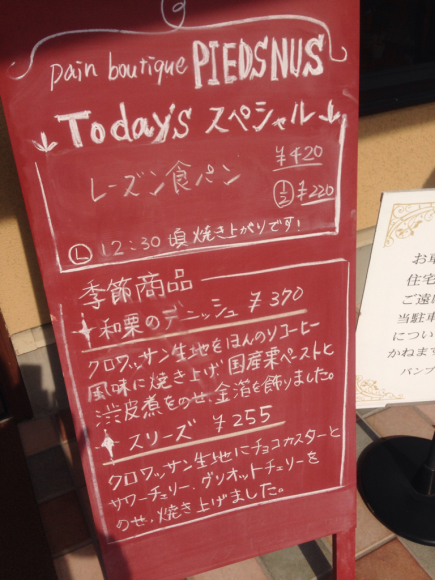 pain boutique PIEDS NUS
Today's スペシャル
レーズン食パン ¥420
1/2 ¥220
L 12:30頃焼き上がりです!
季節商品
和栗のデニッシュ ¥370
クロワッサン生地をほんのりコーヒー
風味に焼き上げ国産栗ペーストと
渋皮煮をのせ、金箔を飾りました。
スリーズ ¥255
クロワッサン生地にチョコカスターと
サワーチェリー、グリオットチェリーを
のせ、焼き上げました。
お車
住宅
ご遠
当駐車
につい
かねます
パンブ